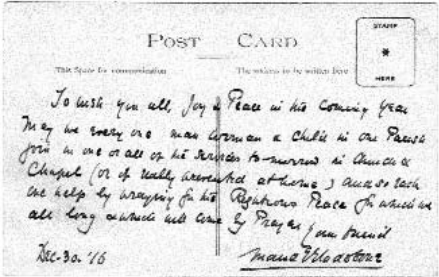 POST CARD
STAMP
*
HERE
This Space for communication The address to be written here
To wish you all, Joy & Peace in the Coming Year
May we every one man woman & child in our Parish
join in one or all of the services to-morrow in Church &
Chapel (or if really prevented at home) and so each
one help by praying for the Righteous Peace for which we
all long & which will come by Prayer
Your friend
Dec-30. '16